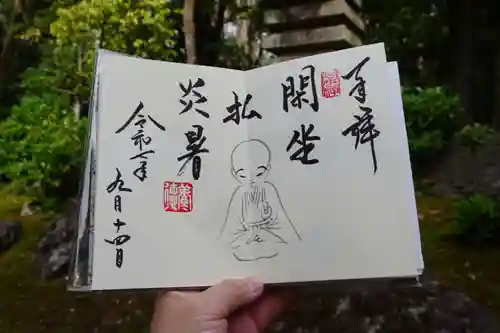 奉拝
閑坐
払
炎暑
令和七年
九月十四日